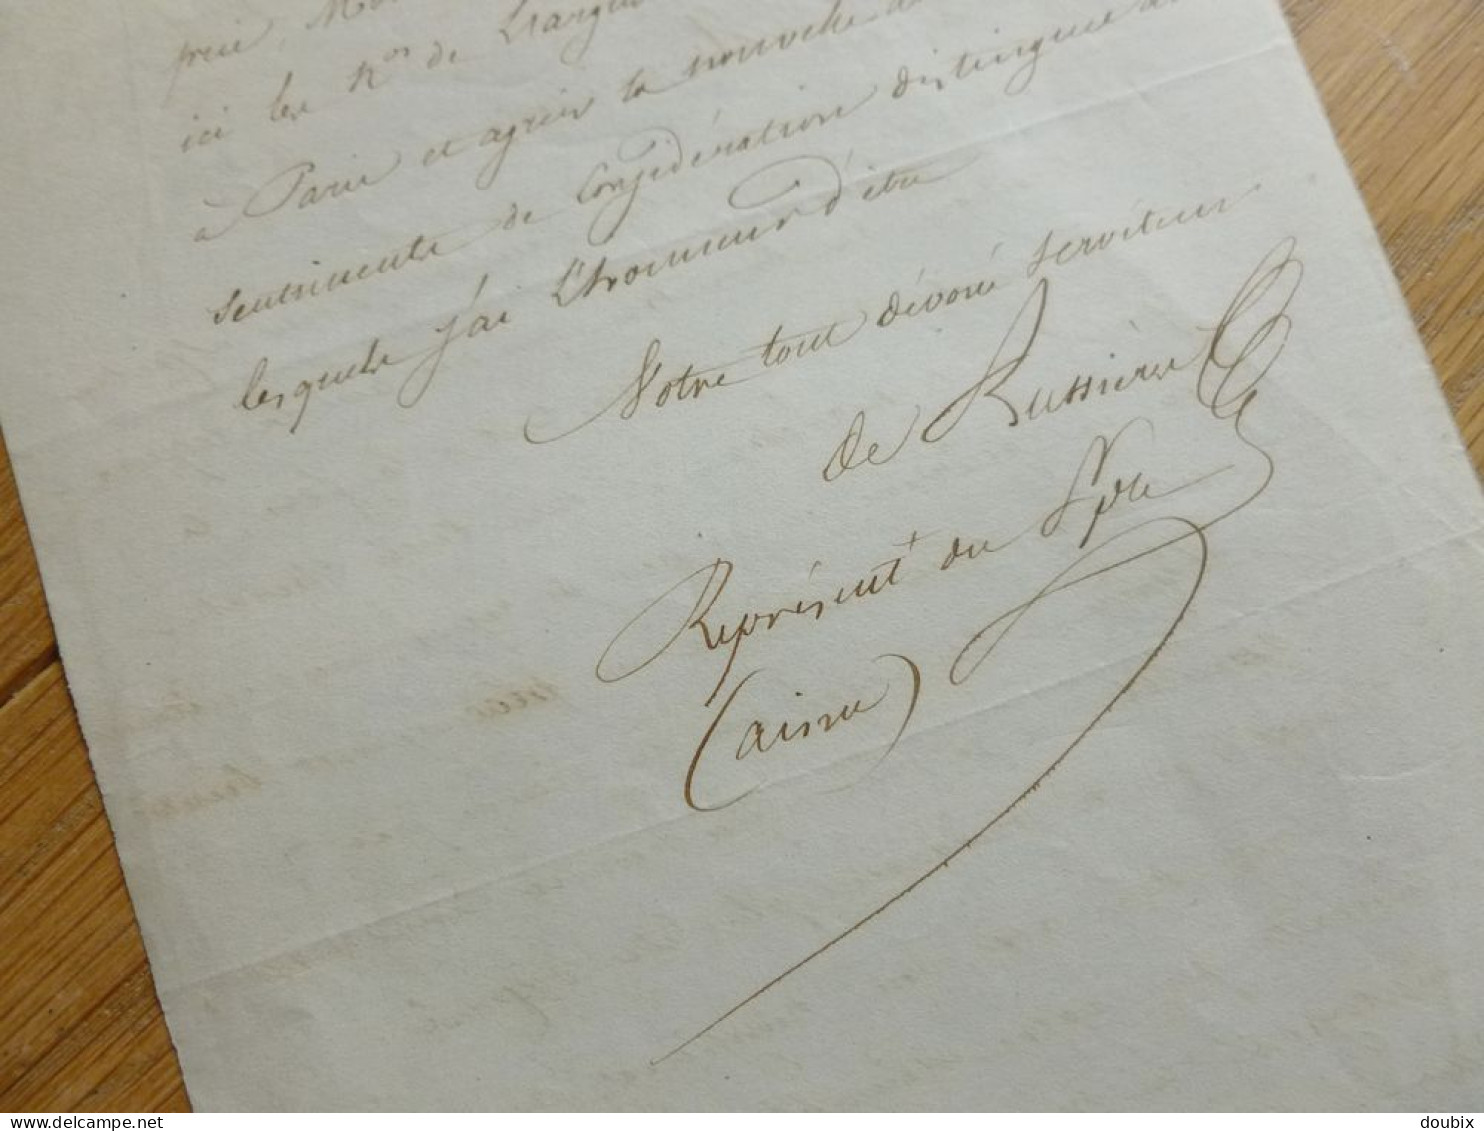 prie, Mo
ici les nos de L'argus
à Paris et agréer la nouvelle
sentiments de Considération distinguée
lesquels j'ai L'honneur d'être
Votre tout dévoué serviteur
de Bussières
Représentt du Pple
(aisne)
doubix